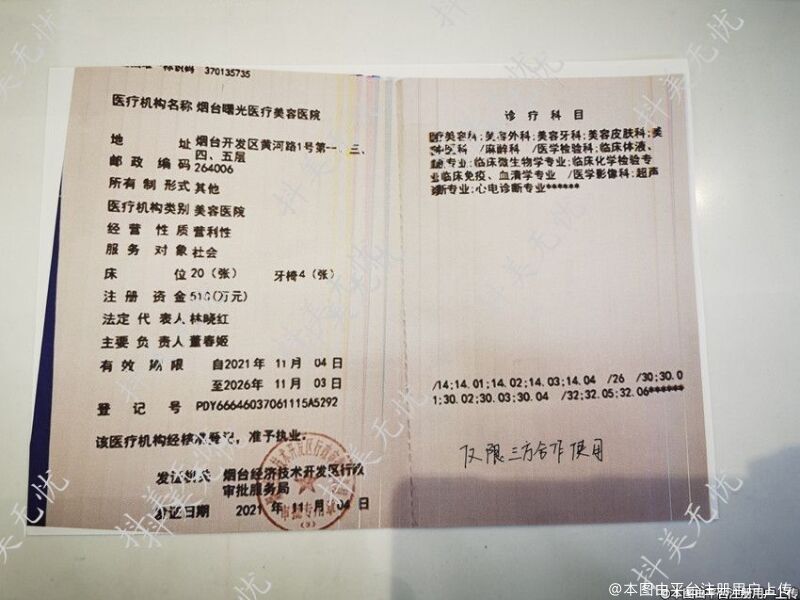 370135735
医疗机构名称 烟台曙光医疗美容医院
地 址 烟台开发区黄河路1号第一、三、
四、五层
邮政编码 264006
所有制形式 其他
医疗机构类别 美容医院
经营性质 营利性
服务对象 社会
床 位 20（张） 牙椅4（张）
注册资金 510(万元)
法定代表人 林晓红
主要负责人 董春姬
有效期限 自2021年 11月 04日
至2026年 11月 03日
登记号 PDY66646037061115A5292
该医疗机构经核准登记，准予执业。
发证机关 烟台经济技术开发区行政
审批服务局
发证日期 2021年 11月 04日
诊疗科目
医疗美容科;美容外科;美容牙科;美容皮肤科;美
容医科 /麻醉科 /医学检验科;临床体液、
血专业;临床微生物学专业;临床化学检验专
业临床免疫、血清学专业 /医学影像科;超声
诊断专业;心电诊断专业******
/14;14.01;14.02;14.03;14.04 /26 /30;30.0
1;30.02;30.03;30.04 /32;32.05;32.06******
仅限三方合作使用
抖美无忧
@本图由平台注册用户上传